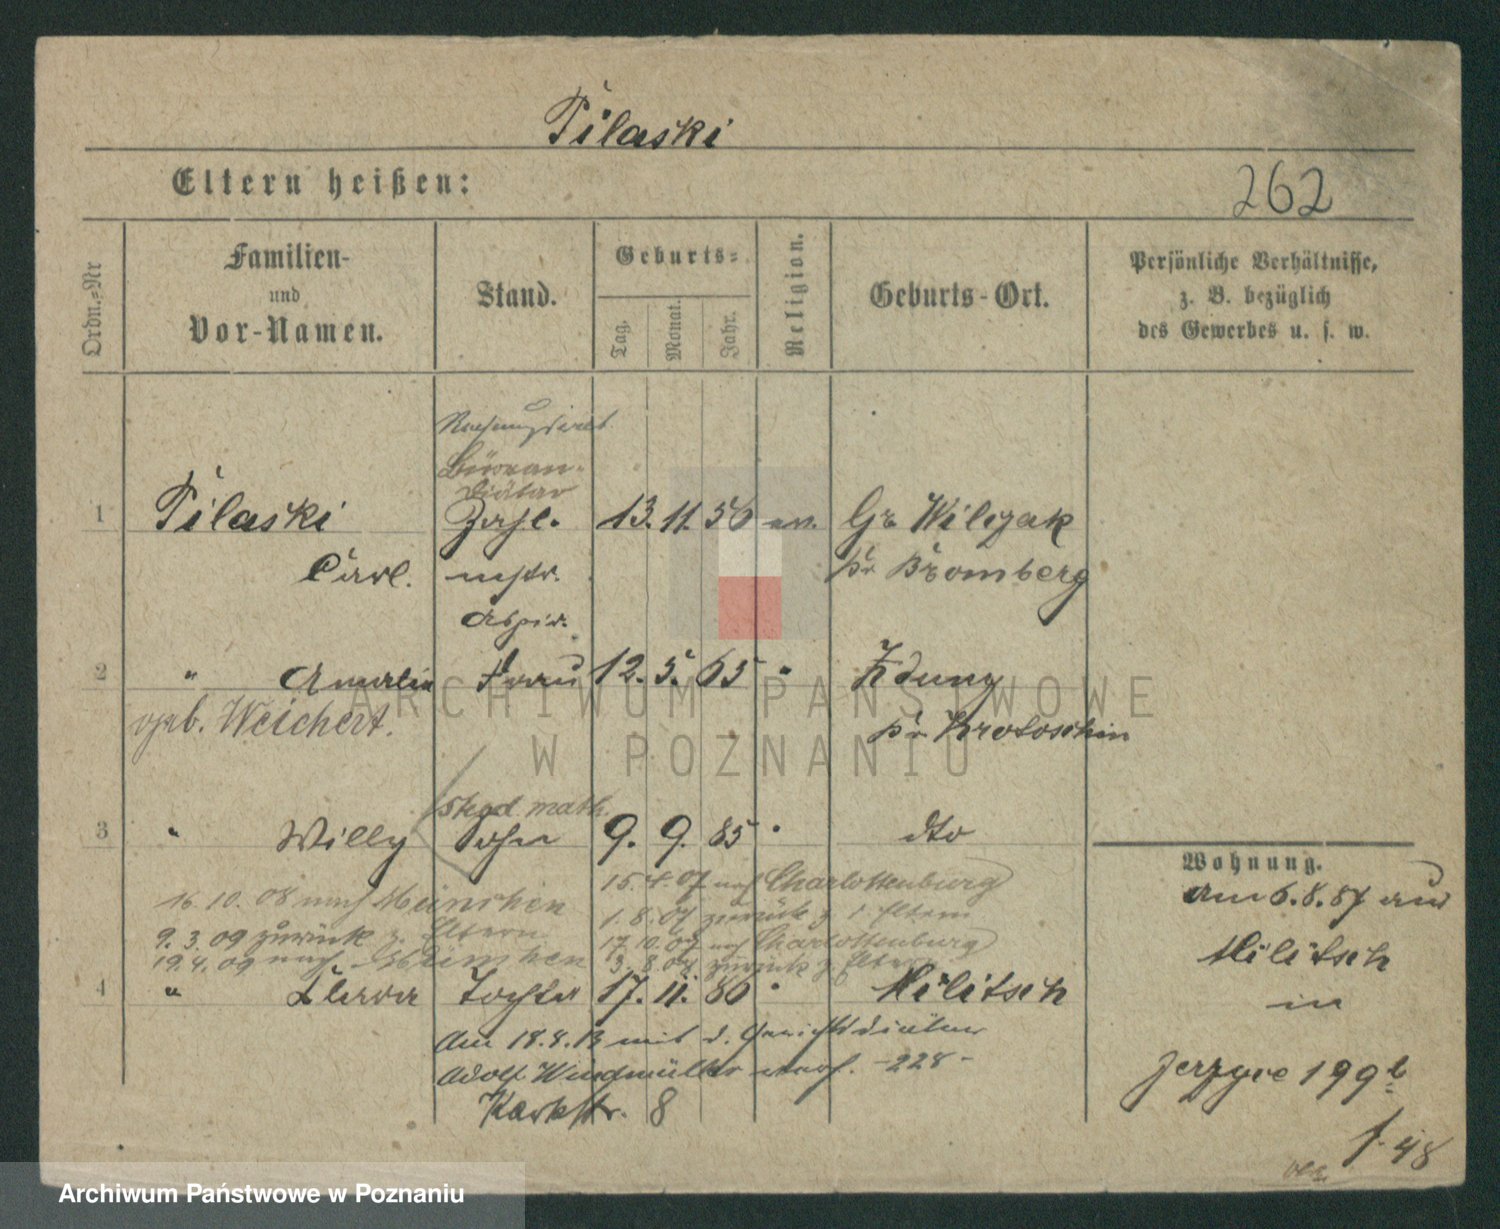 Pilaski
Eltern heißen:
262
Ordn.=Nr
Familien-
und
Vor-Namen.
Stand.
Geburts=
Tag.
Monat.
Jahr.
Religion.
Geburts-Ort.
Persönliche Verhältnisse,
z. B. bezüglich
des Gewerbes u. s. w.
Büroan-
diätar
1 Pilaski Zahl. 13. 11. 56 ev. Gr Wilczak
Carl. mstr. pr Bromberg
Aspir.
2 " Amalia Frau 12. 5. 65 " Zduny
geb. Weichert. pr Krotoschin
ARCHIWUM PAŃSTWOWE
W POZNANIU
Stud math.
3 " Willy Sohn 9. 9. 85 " dto
Wohnung.
15. 4. 07 nach Charlottenburg
am 6. 8. 87 aus
16. 10. 08 nach München
1. 8. 07 zurück z. Eltern
9. 3. 09 zurück z. Eltern
17. 10. 07 nach Charlottenburg
Militsch
19. 4. 09 nach München
3. 8. 08 zurück z. Eltern
4 " Clara Tochter 17. 11. 86 " Militsch
in
Am 18. 8. 13 mit d. Gerichtsdiätar
Adolf Windmüller verh. -228-
Jerzyce 199b
Karlstr. 8
f. 48
Archiwum Państwowe w Poznaniu